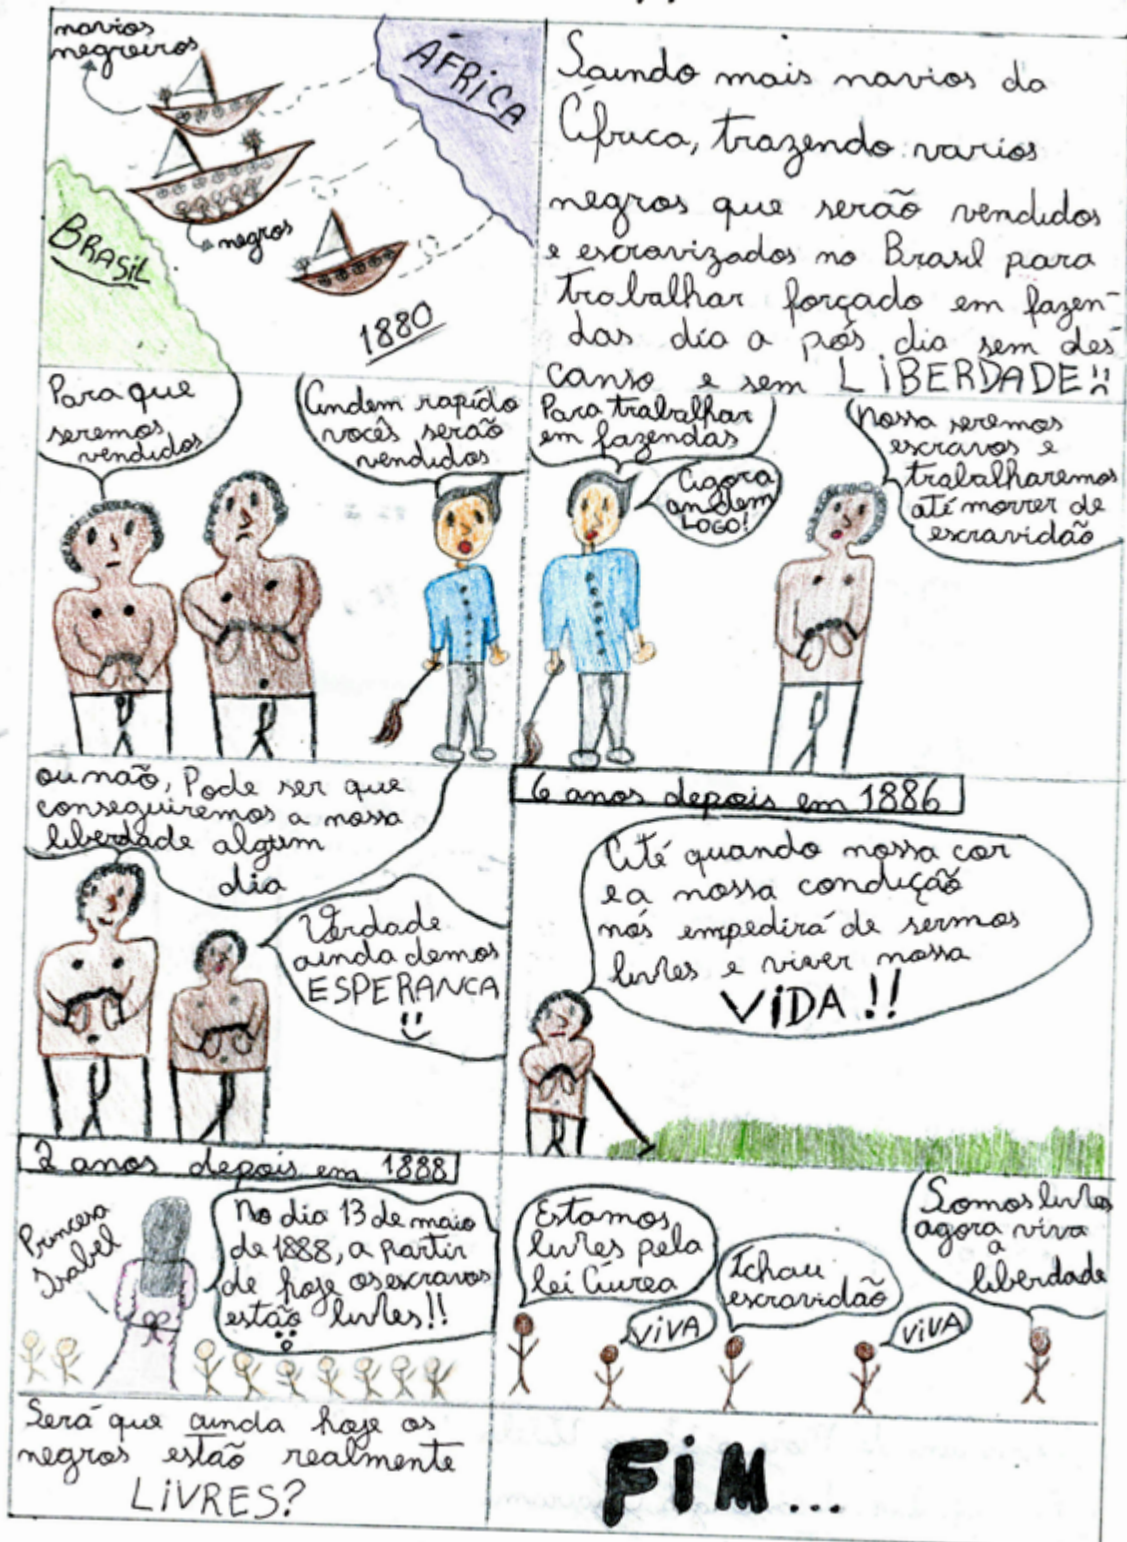 navios
negreiros
ÁFRICA
BRASIL
negros
1880
Saindo mais navios da
África, trazendo varios
negros que serão vendidos
e escravizados no Brasil para
trabalhar forçado em fazen-
das dia a pós dia sem des
canso e sem LIBERDADE!!
Para que
seremos
vendidos
Andem rapido
vocês serão
vendidos
Para trabalhar
em fazendas
Agora
andem
LOGO!
Nossa seremos
escravos e
trabalharemos
até morrer de
escravidão
ou não, Pode ser que
conseguiremos a nossa
liberdade algum
dia
Verdade
ainda demos
ESPERANCA
6 anos depois em 1886
Até quando nossa cor
e a nossa condução
nós empedirá de sermos
livres e viver nossa
VIDA!!
2 anos depois em 1888
Princesa
Isabel
No dia 13 de maio
de 1888, a partir
de hoje os escravos
estão livres!!
Estamos
livres pela
lei Áurea
VIVA
Tchau
escravidão
VIVA
Somos livres
agora viva
a
liberdade
Será que ainda hoje os
negros estão realmente
LIVRES?
FIM...